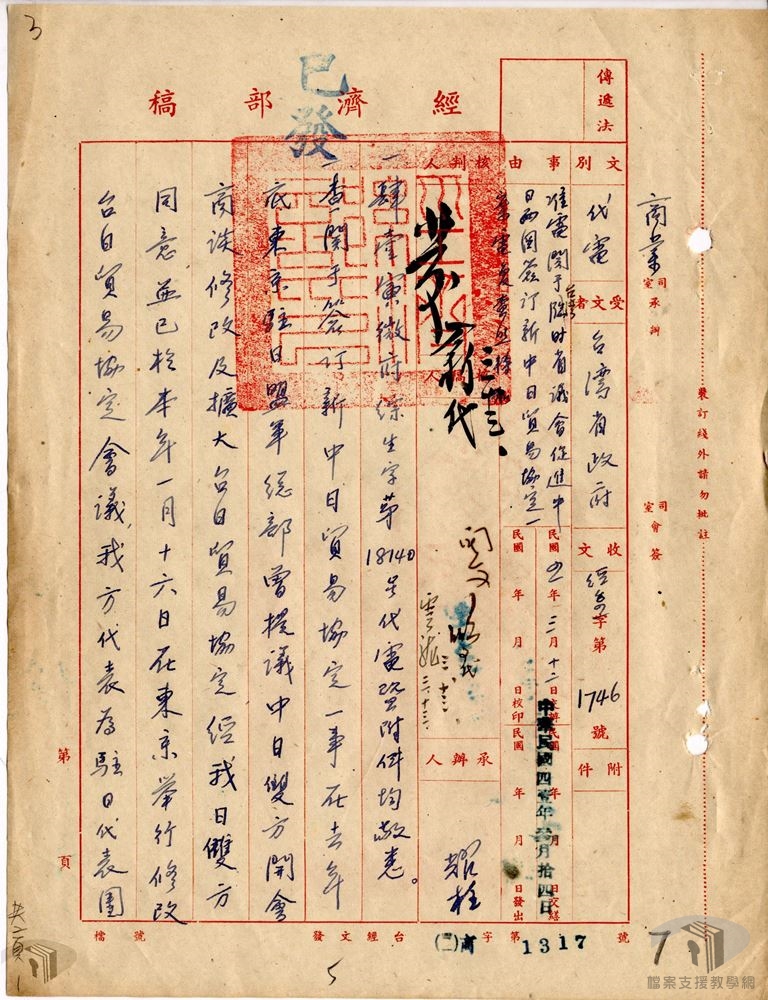 3
已發
經濟部稿
傳遞法
文別
代電
事由
准電關于臨時省議會促進中
日兩國簽訂新中日貿易協定一
台灣
核判人
受文者
台灣省政府
收文
經台字第1746號
附件
商業
司室承辦
司室會簽
裝訂綫外請勿批註
民國 年三月十二日
民國 年 月 日校印
民國 年 月 日發出
中華民國四壹年叁月拾四日
承辦人
耀柱
一肆壹寅微府綜生字第18140號代電暨附件均敬悉。
一查關于簽訂新中日貿易協定一事在去年
底東京駐日盟軍總部曾提議中日雙方開會
商談修改及擴大台日貿易協定經我日雙方
同意並已於本年一月十六日在東京舉行修改
台日貿易協定會議,我方代表為駐日代表團
第 頁
檔號
發文經台商(二)字第1317號
共二頁
5
7
檔案支援教學網